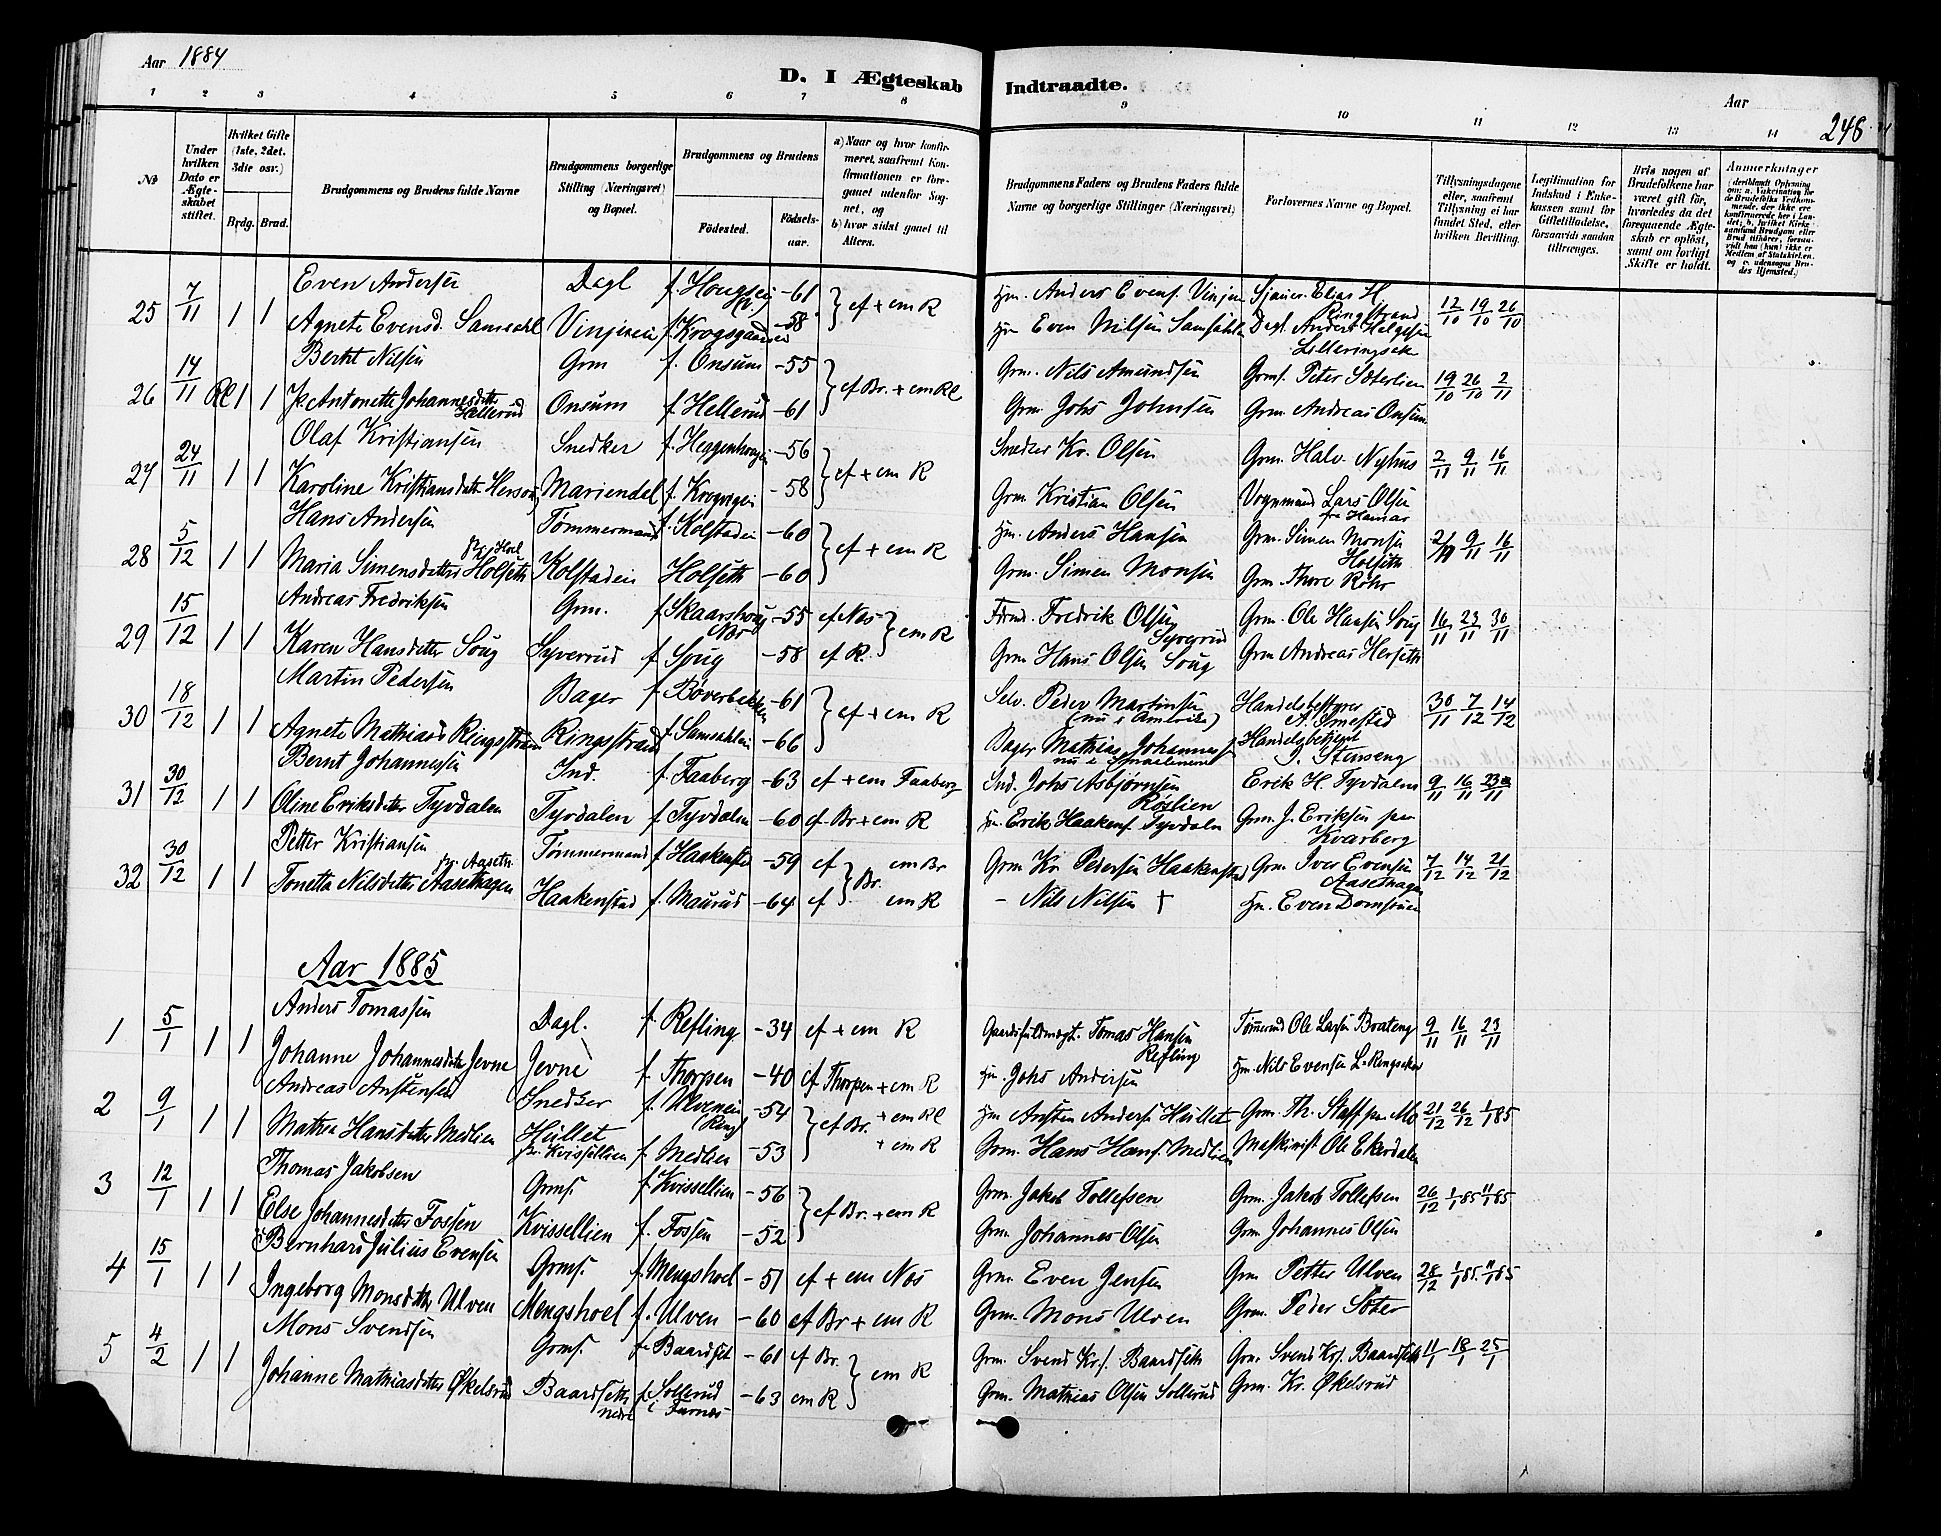 Aar 1884
D. I Ægteskab Indtraadte.
Aar
248
1 2 3 4 5 6 7 8 9 10 11 12 13 14
No
Under hvilken Dato er Ægteskabet stiftet.
Hvilket Gifte (1ste, 2det, 3die osv.)
Brdg. Brud.
Brudgommens og Brudens fulde Navne
Brudgommens borgerlige Stilling (Næringsvei) og Bopæl.
Brudgommens og Brudens
Fødested. Fødselsaar.
a) Naar og hvor konfirmeret, saafremt Konfirmationen er foregaaet udenfor Sognet, og
b) hvor sidst gaaet til Alters.
Brudgommens Faders og Brudens Faders fulde Navne og borgerlige Stillinger (Næringsvei)
Forlovernes Navne og Bopæl.
Tillysningsdagene eller, saafremt Tillysning ei har fundet Sted, efter hvilken Bevilling.
Legitimation for Indskud i Enkekassen samt for Giftetilladelse, forsaavidt saadan tiltrænges.
Hvis nogen af Brudefolkene har været gift før, hvorledes da det foregaaende Ægteskab er opløst, samt om lovligt Skifte er holdt.
Anmærkninger
25 7/11 1 1 Even Andersen Dagl f. -61 } cf + em R Hm. Anders Evens. Vinjen Elias H. Ringstrand 12/10 19/10 26/10
Agnete Evensd. Samsahl Vinjien f. Krogsgaarden -58 Hm Even Nilsen Samsahlen Dagl. Anders Helgesen Lilleringsaker
26 14/11 Rl 1 1 Bernt Nilsen Grm f. Onsum -55 } cf Br. + em Rl Grm. Nils Amundsen Grms. Peter Soterlien 19/10 26/10 2/11
Antonette Johannesdtr. Hellerud Onsum f. Hellerud -61 Grm Johs Johnsen Grm. Andreas Onsum
27 24/11 1 1 Olaf Kristiansen Snedker f. -56 } cf + em R Snedker Kr. Olsen Grm. Halv. Nyhus 2/11 9/11 16/11
Karoline Kristiansdatt. Mariendel f. -58 Grm. Kristian Olsen Vognmand Lars Olsen fra Hamar
28 5/12 1 1 Hans Andersen Tømmermand f. Kolstadei -60 } cf + em R Hm. Anders Hansen Grm. Simen Monsen Holseth 2/11 9/11 16/11
Maria Simensdatter Holseth Kolstadein Holseth -60 Grm. Simen Monsen Grm Thore Røhr
29 15/12 1 1 Andreas Fredriksen Grm. f. Skaarshoug Næs -55 cf Næs } em R Frmd. Fredrik Olsen Syverrud Grm. Ole Hansen Soug 16/11 23/11 30/11
Karen Hansdatter Soug Syverrud f. Soug -58 cf R. Grm Hans Olsen Soug Grm Andreas Herseth
30 18/12 1 1 Martin Pedersen Bager f. Bøverbakken -61 } cf + em R Selv. Peder Martinsen (nu i Amerika) Handelsbestyrer A. Smested 30/11 7/12 14/12
Agnete Mathiasd. Ringstrand Ringstrand f. Samsahlen -66 Bager Mathias Johannes. Handelsbetjent J. Stenseng
31 30/12 1 1 Bernt Johannessen Ind. f. Faaberg -63 cf + em Faaberg Ind. Johs Asbjørnsen Røslien Erik H. Tyvdalen 9/11 16/11 23/11
Oline Eriksdatter Tyvdalen Tyvdalen f. Tyvdalen -60 cf Br + em R Hm. Erik Haakens. Tyvdalen Grm. J. Eriksen paa Kvarberg
32 30/12 1 1 Petter Kristiansen Tømmermand f. Haakenstad -59 cf } Br. em Br Grm Kr. Pedersen Haakenstad Grm. Iver Evensen Aasethagen 7/12 14/12 21/12
Tonetta Nilsdatter Aasethagen Haakenstad f. Maurud -64 cf em R - Nils Nilsen † Hm. Even Domstuen
Aar 1885
1 5/1 1 1 Anders Tomassen Dagl. f. Refling -34 cf + em R Gaardsfuldmægt. Tomas Hansen Refling Tømmermd Ole Larsen Brateng 9/11 16/11 23/11
Johanne Johannesdatter Jevne Jevne f. Thorpen -40 cf Thorpen + em R Hm. Johs Andersen Hm Nils Evensen L. Ringsaker
2 9/1 1 1 Andreas Anstensen Snedker f. Ulvenei -54 } cf Br. + em Rl Hm Ansten Anders. Hullet Grm. Th. Staff paa Mo 21/12 26/12 1/1 85
Mathea Hansdatter Medlien Hullet f. Medlien -53 + em R Grm. Hans Hans. Medlien Maskinist Ole Ekerdalen
3 12/1 1 1 Thomas Jakobsen Grms. f. Kvissellien -56 } cf Br. + em R Grm. Jakob Tollefsen Grm. Jakob Tollefsen 26/12 1/1 85 11/1 85
Else Johannesdatter Fossen Kvissellien f. Fossen -52 Grm. Johannes Olsen Grm Johannes Olsen
4 15/1 1 1 Bernhard Julius Evensen Grms. f. Mengshoel -51 cf + em Næs Grm. Even Jensen Grm Petter Ulven 28/12 1/1 85 11/1 85
Ingeborg Monsdatter Ulven Mengshoel f. Ulven -60 cf Br + em R Grm. Mons Ulven Grm. Peder Soter
5 4/2 1 1 Mons Svendsen Grms. f. Baardset -61 cf Br. } em R Grm. Svend Kr. Baardseth Grm. Svend Kr. Baardseth 11/1 18/1 25/1
Johanne Mathiasdatter Økelsrud Baardseth nedre f. Sollerud i Furnæs -63 em R Grm. Mathias Olsen Sollerud Grm. Kr. Økelsrud